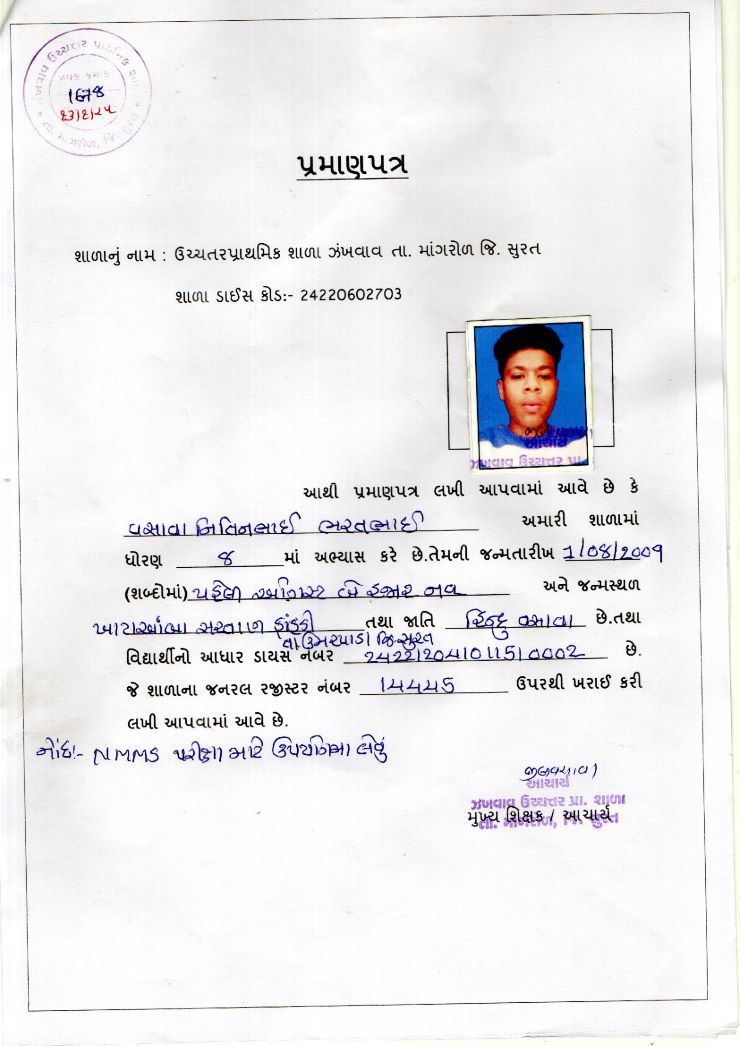 ઝંખવાવ ઉચ્ચત્તર પ્રાથમિક શા
જાવક ક્રમાંક
તા. માંગરોળ, જિ. સુરત
પ્રમાણપત્ર
શાળાનું નામ : ઉચ્ચતરપ્રાથમિક શાળા ઝંખવાવ તા. માંગરોળ જિ. સુરત
શાળા ડાઈસ કોડ:- 24220602703
આચાર્ય
ઝંખવાવ ઉચ્ચત્તર પ્રા.
આથી પ્રમાણપત્ર લખી આપવામાં આવે છે કે
વસાવા નિતિનભાઈ ભરતભાઈ અમારી શાળામાં
ધોરણ ૮ માં અભ્યાસ કરે છે.તેમની જન્મતારીખ 1/08/2009
(શબ્દોમાં) પહેલી ઓગસ્ટ બે હજાર નવ અને જન્મસ્થળ
તથા જાતિ હિન્દુ વસાવા છે.તથા
તા.ઉમરપાડા જિ-સુરત
વિદ્યાર્થીનો આધાર ડાયસ નંબર 242212041011510002 છે.
જે શાળાના જનરલ રજીસ્ટર નંબર 14445 ઉપરથી ખરાઈ કરી
લખી આપવામાં આવે છે.
નોંધ:- NMMS પરીક્ષા માટે ઉપયોગમાં લેવું
આચાર્ય
ઝંખવાવ ઉચ્ચત્તર પ્રા. શાળા
મુખ્ય શિક્ષક / આચાર્ય
તા. માંગરોળ, જિ. સુરત